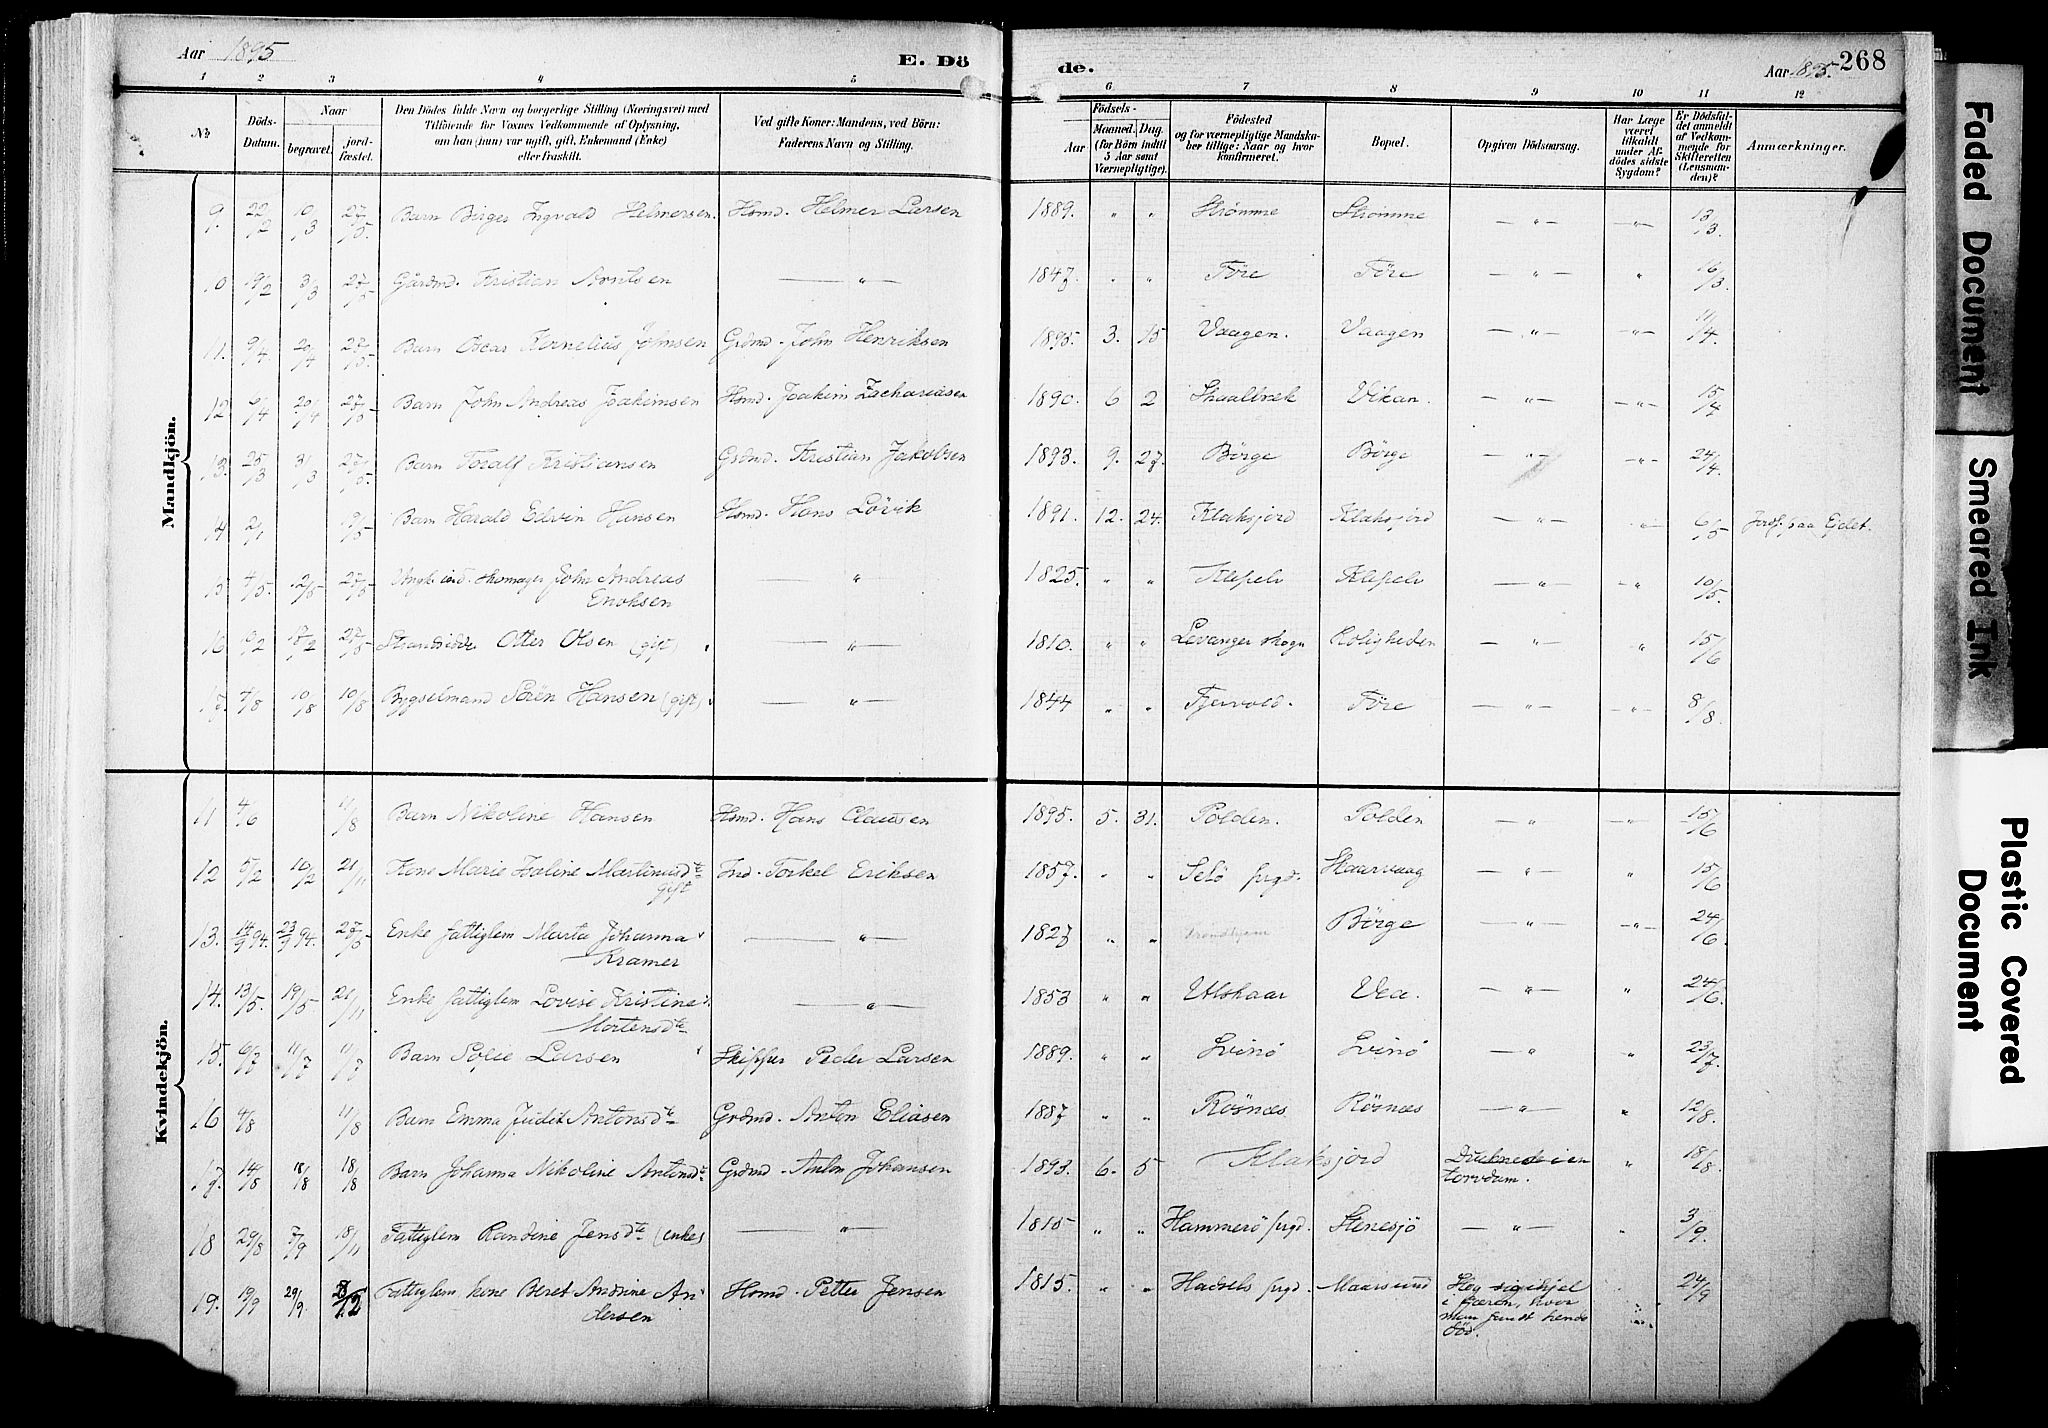 Aar 1895
E. Dö
de.
Aar 1895.
268
1 2 3 4 5
6 7 8 9 10 11 12
No
Döds-Datum.
Naar
begravet.
jord-fæstet.
Den Dödes fulde Navn og borgerlige Stilling (Næringsvei) med
Tilföiende for Voxnes Vedkommende af Oplysning,
om han (hun) var ugift, gift, Enkemand (Enke)
eller fraskilt.
Ved gifte Koner: Mandens, ved Börn:
Faderens Navn og Stilling.
Födsels-
Aar
Maaned. Dag.
(for Börn indtil
5 Aar samt
Værnepligtige).
Födested
og for værnepligtige Mandska-
ber tillige: Naar og hvor
konfirmeret.
Bopæl.
Opgiven Dödsaarsag.
Har Læge
været
tilkaldt
under Af-
dödes sidste
Sygdom?
Er Dödsfal-
det anmeldt
af Vedkom-
mende for
Skifteretten
(Lensman-
den)?
Anmærkninger.
Mandkjön.
9. 22/2 10/3 27/5. Barn Birger Ingvald Helmersen. Hsmd. Helmer Larsen 1889. " " Strømme Strømme — " — — " — 13/3.
10 19/2 3/3 27/5 Gårdmd. Kristian Arntsen — " — 1847. " " Töre Töre — " — " 16/3.
11. 9/4. 20/4 27/5. Barn Oscar Kornelius Johnsen Grdmd. John Henriksen 1895. 3. 15 Vaagen. Vaagen — " — — " — 11/4.
12 6/4 20/4 27/5 Barn John Andreas Joakimsen Hsmd. Joakim Zachariasen 1890. 6 2 Skaalbræk Vikan. — " — — " — 15/4
13. 25/3 31/3 27/5. Barn Toralf Kristiansen Grdmd. Kristian Jakobsen 1893. 9. 27. Börge Börge — " — — " — 24/4.
14 2/1 19/5 Barn Harald Edvin Hansen Hsmd. Hans Lövik 1891. 12. 24. Klaksjord Klaksjord — " — — " — 6/5 Jordf. paa Ejdet.
15 4/5. 12/5 27/5 Ungk. ind. skomager John Andreas
Enoksen — " — 1825. " " Klepelv Klepelv — " — — " — 10/5.
16 19/2 27/5 Strandsidder Otter Olsen (gift) — " — 1810. " " Levanger skogn Roligheden — " — " 15/6
17. 7/8 10/8 10/8 Bygselmand Sören Hansen (gift) — " — 1844 " " Fjervold. Töre — " — — " — 8/8.
Kvindekjön.
11 4/6 11/8 Barn Nikoline Hansen Hsmd. Hans Clausen 1895. 5. 31. Polden. Polden — " — — " — 15/6
12 5/2 10/2 21/11 Kone Marie Haline Martinusdte
gift Ind. Torkel Eriksen 1857. " " Selö prgd. Skaarvaag — " — " 15/6
13. 14/9 94. 23/9 94. 27/5 Enke fattiglem Marta Johanna
Kramer — " — 1827 " " Trondhjem Börge — " — — " — 24/6.
14. 13/5. 19/5 21/11 Enke fattiglem Lovise Kristine
Mortensdte — " — 1853 " " Ulskaar Vea. — " — " 24/6.
15. 6/7 11/7 11/7 Barn Sofie Larsen Skipper Peder Larsen 1889. " " Svinö Svinö — " — " 23/7.
16 4/8 11/8 Barn Emma Judit Antonsdte Grdmd. Anton Eliasen 1887 " " Rösnæs Rösnæs — " — " 12/8.
17. 14/8 18/8 18/8 Barn Johanna Nikoline Antonsdte Grdmd. Anton Johansen 1893. 6. 5 Klaksjord Druknede i en
torvdam. " 18/8.
18 29/8 7/9 18/11 Fattiglem Randine Jensdte (enke) — " — 1815 " " Hammerö prgd. Stenesjö — " — " 3/9.
19. 19/9 29/9. 28/12 Fattiglem kone Beret Andrine An
dersen Hsmd. Petter Jensen 1815. " " Hadsels prgd. Maarsund Slog sig ihjel
i fjæren, hvor
man fandt hende
död. 24/9
Faded Document
Smeared Ink
Plastic Covered
Document